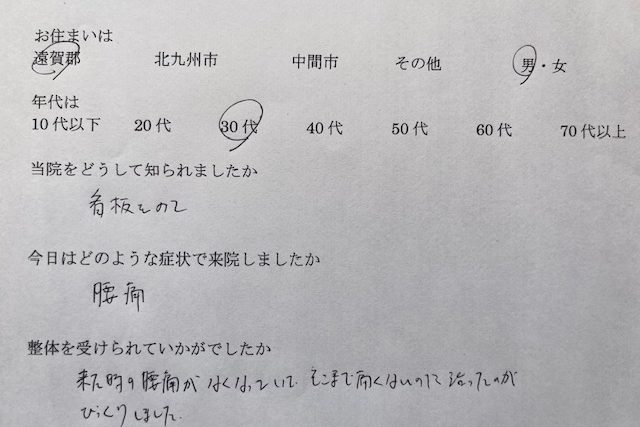 お住まいは
遠賀郡 北九州市 中間市 その他 男・女
年代は
10代以下 20代 30代 40代 50代 60代 70代以上
当院をどうして知られましたか
看板をみて
今日はどのような症状で来院しましたか
腰痛
整体を受けられていかがでしたか
来た時の腰痛がなくなっていて そこまで痛くないのに治ったのが
びっくりしました。